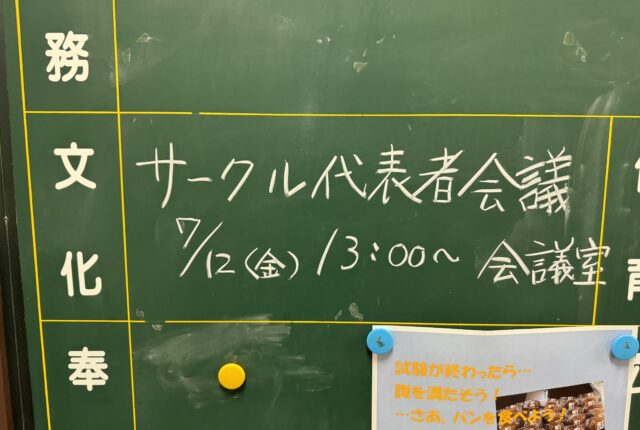 務
文化
サークル代表者会議
7/12(金) 13:00~ 会議室
奉
試験が終わったら…
腹を満たそう!
…さあ、パンを食べよう!